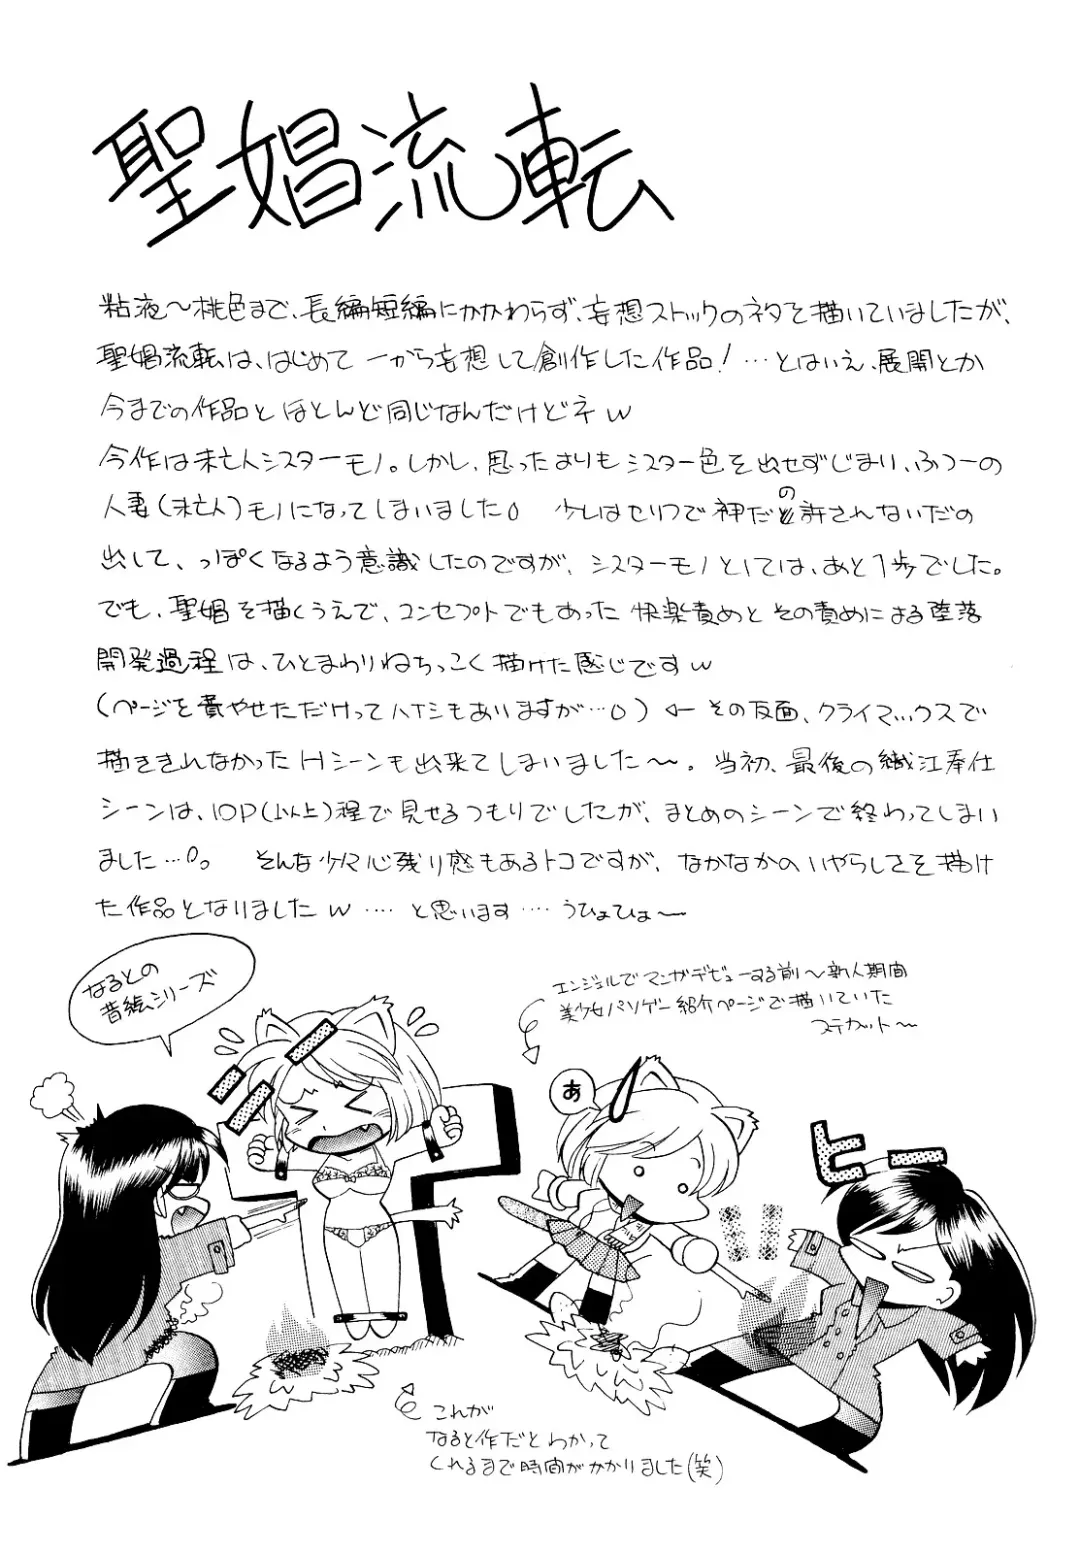 聖娼流転
粘液～桃色まで、長編短編にかかわらず、妄想ストックのネタを描いていましたが、
聖娼流転は、はじめて一から妄想して創作した作品！…とはいえ、展開とか
今までの作品とほとんど同じなんだけどネw
今作は未亡人シスターモノ。しかし、思ったよりもシスター色を出せずじまい、ふつーの
人妻（未亡人）モノになってしまいました 少しはセリフで神だの許されないだの
出して、っぽくなるよう意識したのですが、シスターモノとしては、あと1歩でした。
でも、聖娼を描くうえで、コンセプトでもあった快楽責めとその責めによる堕落
開発過程は、ひとまわりねちっこく描けた感じですw
（ページを費やせただけってハナシもありますが…）← その反面、クライマックスで
描ききれなかったHシーンも出来てしまいました～。当初、最後の織江奉仕
シーンは、10P（以上）程で見せるつもりでしたが、まとめのシーンで終わってしまい
ました… そんな少々心残り感もあるトコですが、なかなかのいやらしさを描け
た作品となりましたw…と思います…うひょひょ～
なるとの
昔絵シリーズ
エンジェルでマンガデビューする前～新人期間
美少女パソゲー紹介ページで描いていた
ステカット～
あ
ヒー
これが
なると作だとわかって
くれるまで時間がかかりました（笑）